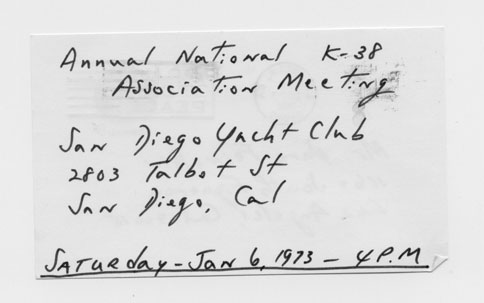 Annual National K-38
Association Meeting
San Diego Yacht Club
2803 Talbot St
San Diego, Cal
Saturday - Jan 6, 1973 - 4 P.M